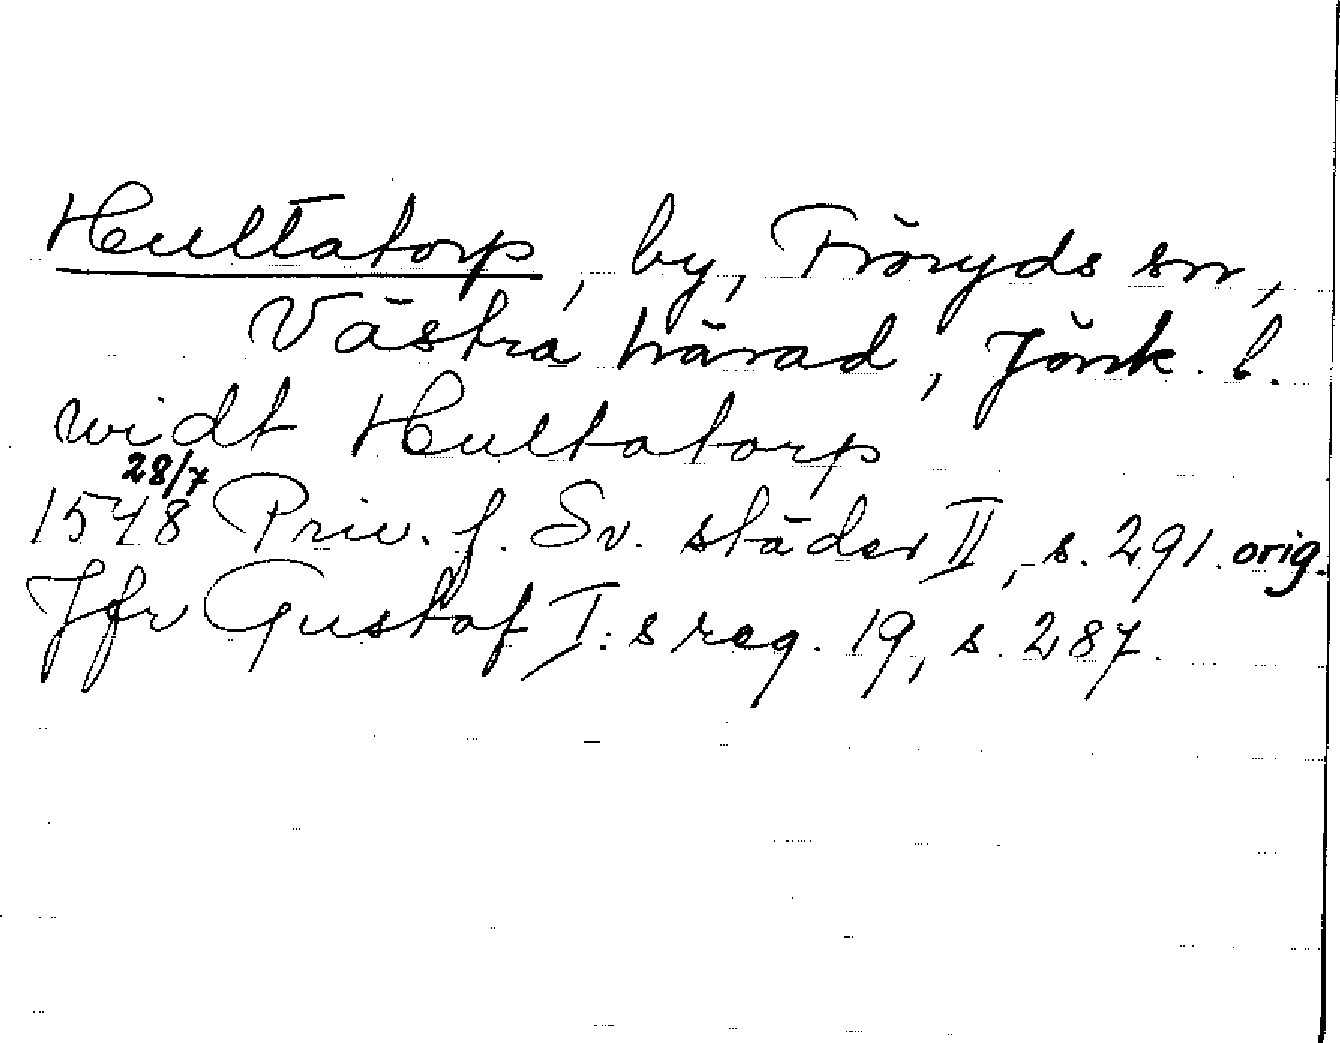 Hultatorp, by, Fröryds sn,
Västra härad, Jönk. l.
widt Hultatorp
28/7
1548 Priv. f. Sv. städer II, s. 291. orig.
Jfr Gustaf I:s reg. 19, s. 287.